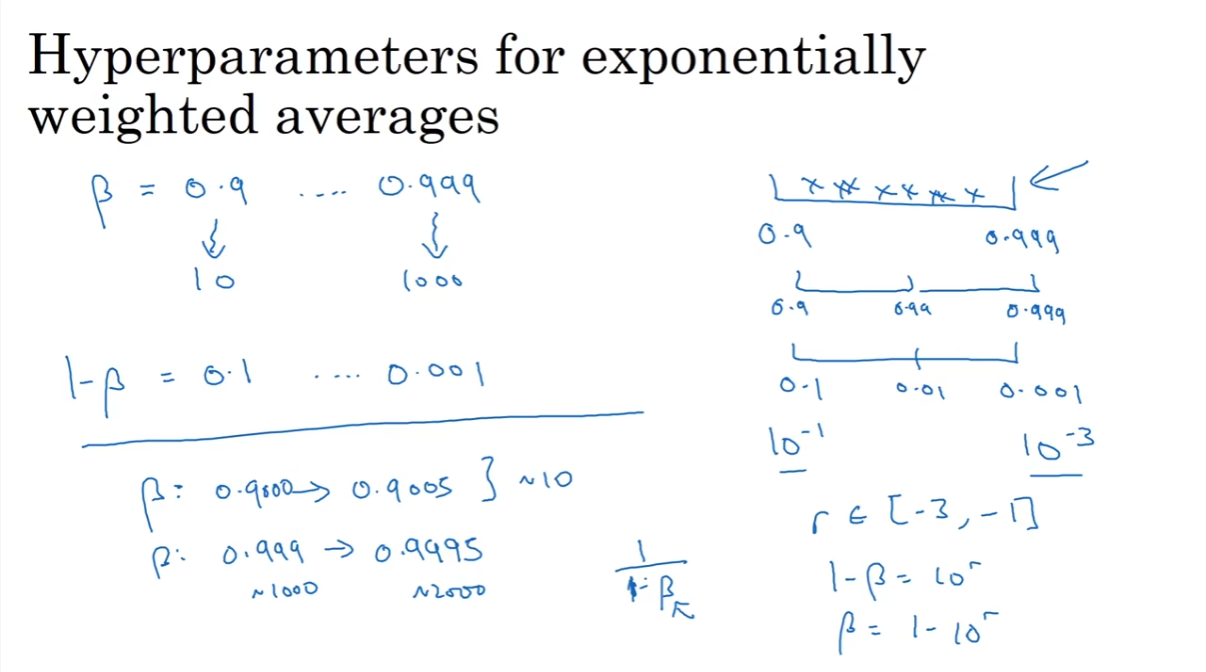 Hyperparameters for exponentially
weighted averages
β = 0.9 .... 0.999
10 1000
1-β = 0.1 .... 0.001
β: 0.9000 → 0.9005 } ~10
β: 0.999 → 0.9995
~1000 ~2000
1
1-β
0.9 0.999
0.9 0.99 0.999
0.1 0.01 0.001
10⁻¹ 10⁻³
r ∈ [-3, -1]
1-β = 10ʳ
β = 1- 10ʳ